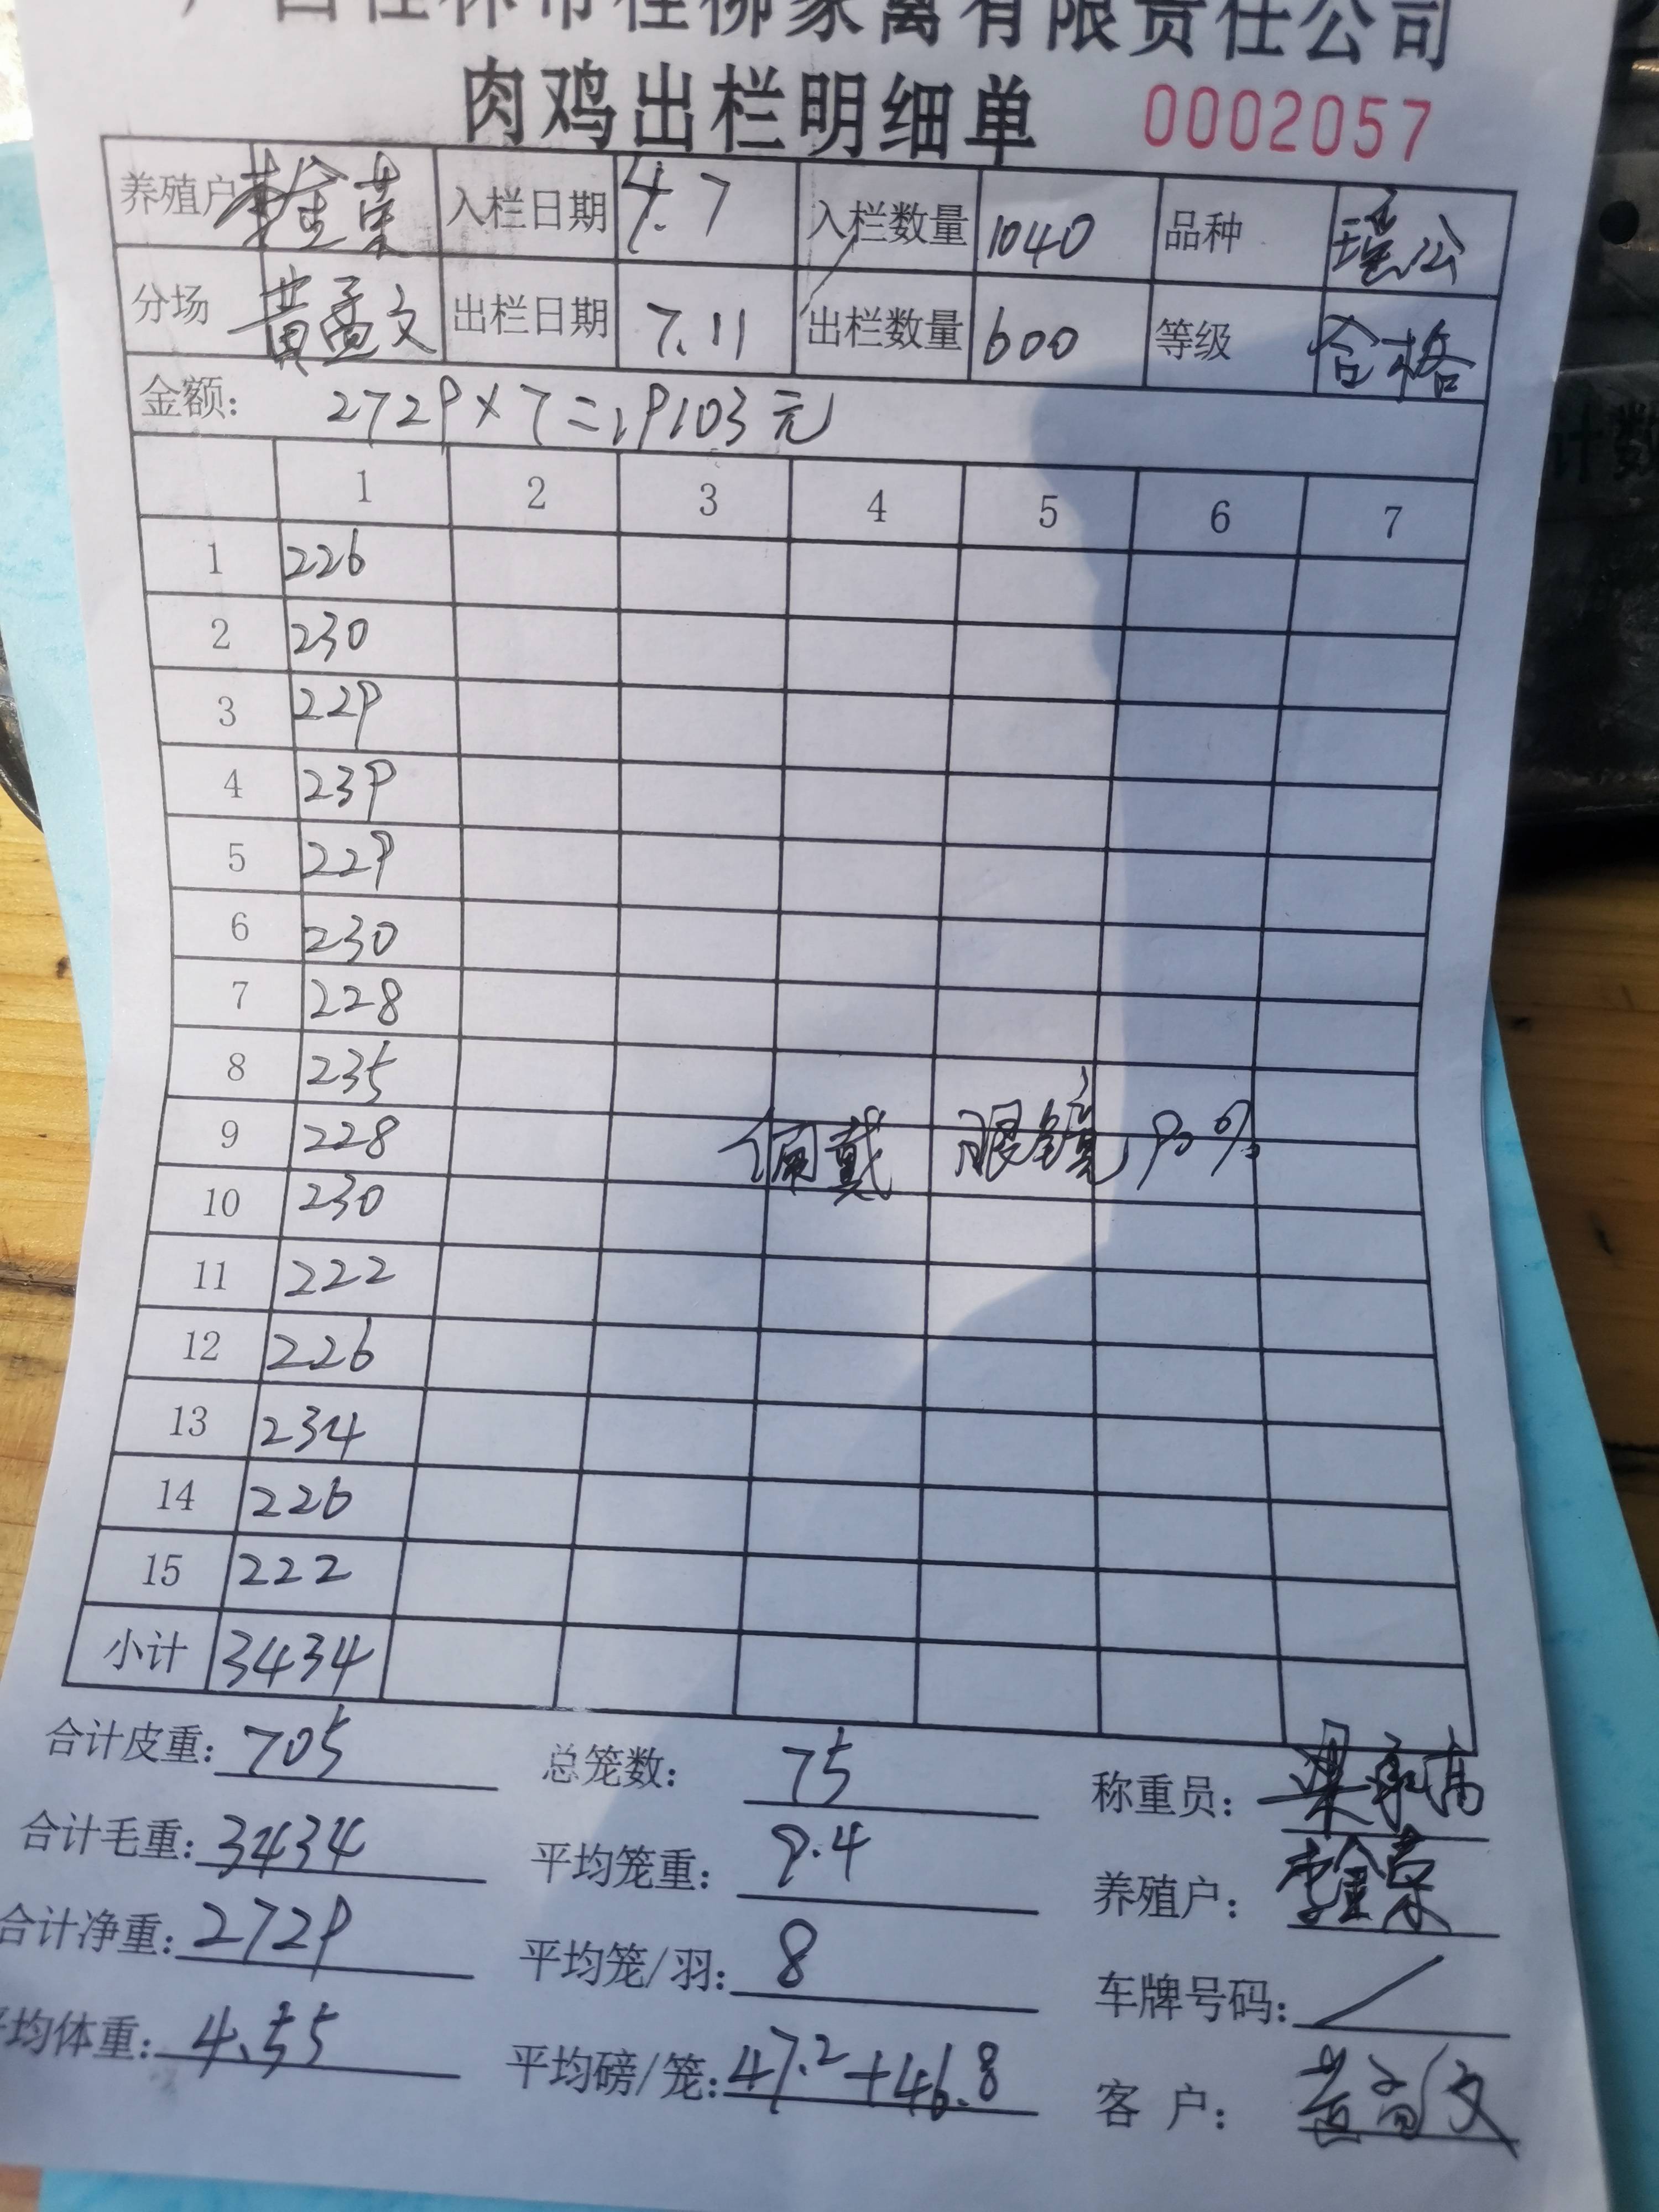 广西桂林市桂柳家禽有限责任公司
肉鸡出栏明细单 0002057
养殖户 李金荣 入栏日期 4.7 入栏数量 1040 品种 瑶公
分场 黄孟文 出栏日期 7.11 出栏数量 600 等级 合格
金额: 2729×7=19103元
1 2 3 4 5 6 7
1 226
2 230
3 229
4 239
5 229
6 230
7 228
8 235
9 228 佩戴 眼镜 90%
10 230
11 222
12 226
13 234
14 226
15 222
小计 3434
合计皮重: 705 总笼数: 75 称重员:
合计毛重: 3434 平均笼重: 9.4 养殖户: 李金荣
合计净重: 2729 平均笼/羽: 8 车牌号码: /
平均体重: 4.55 平均磅/笼: 47.2+46.8 客户: